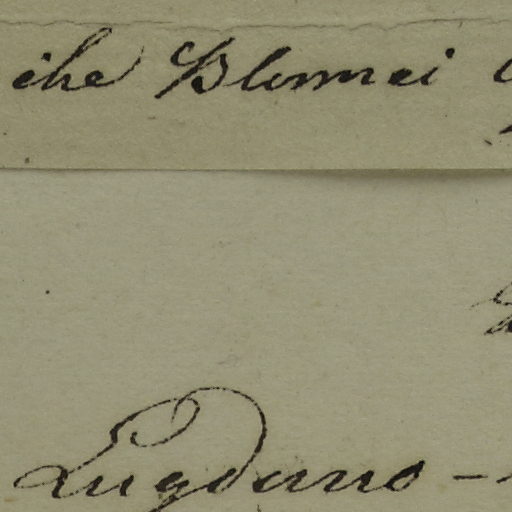 che Blumei
Lugduno-